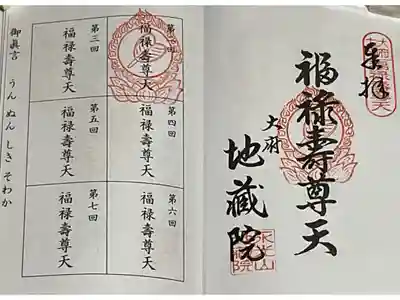 奉拝
福禄寿尊天
大府
地蔵院
第二回
福禄壽尊天
第三回
福禄壽尊天
第四回
福禄壽尊天
第五回
福禄壽尊天
第六回
福禄壽尊天
第七回
福禄壽尊天
御眞言 うん ぬん しき そわか